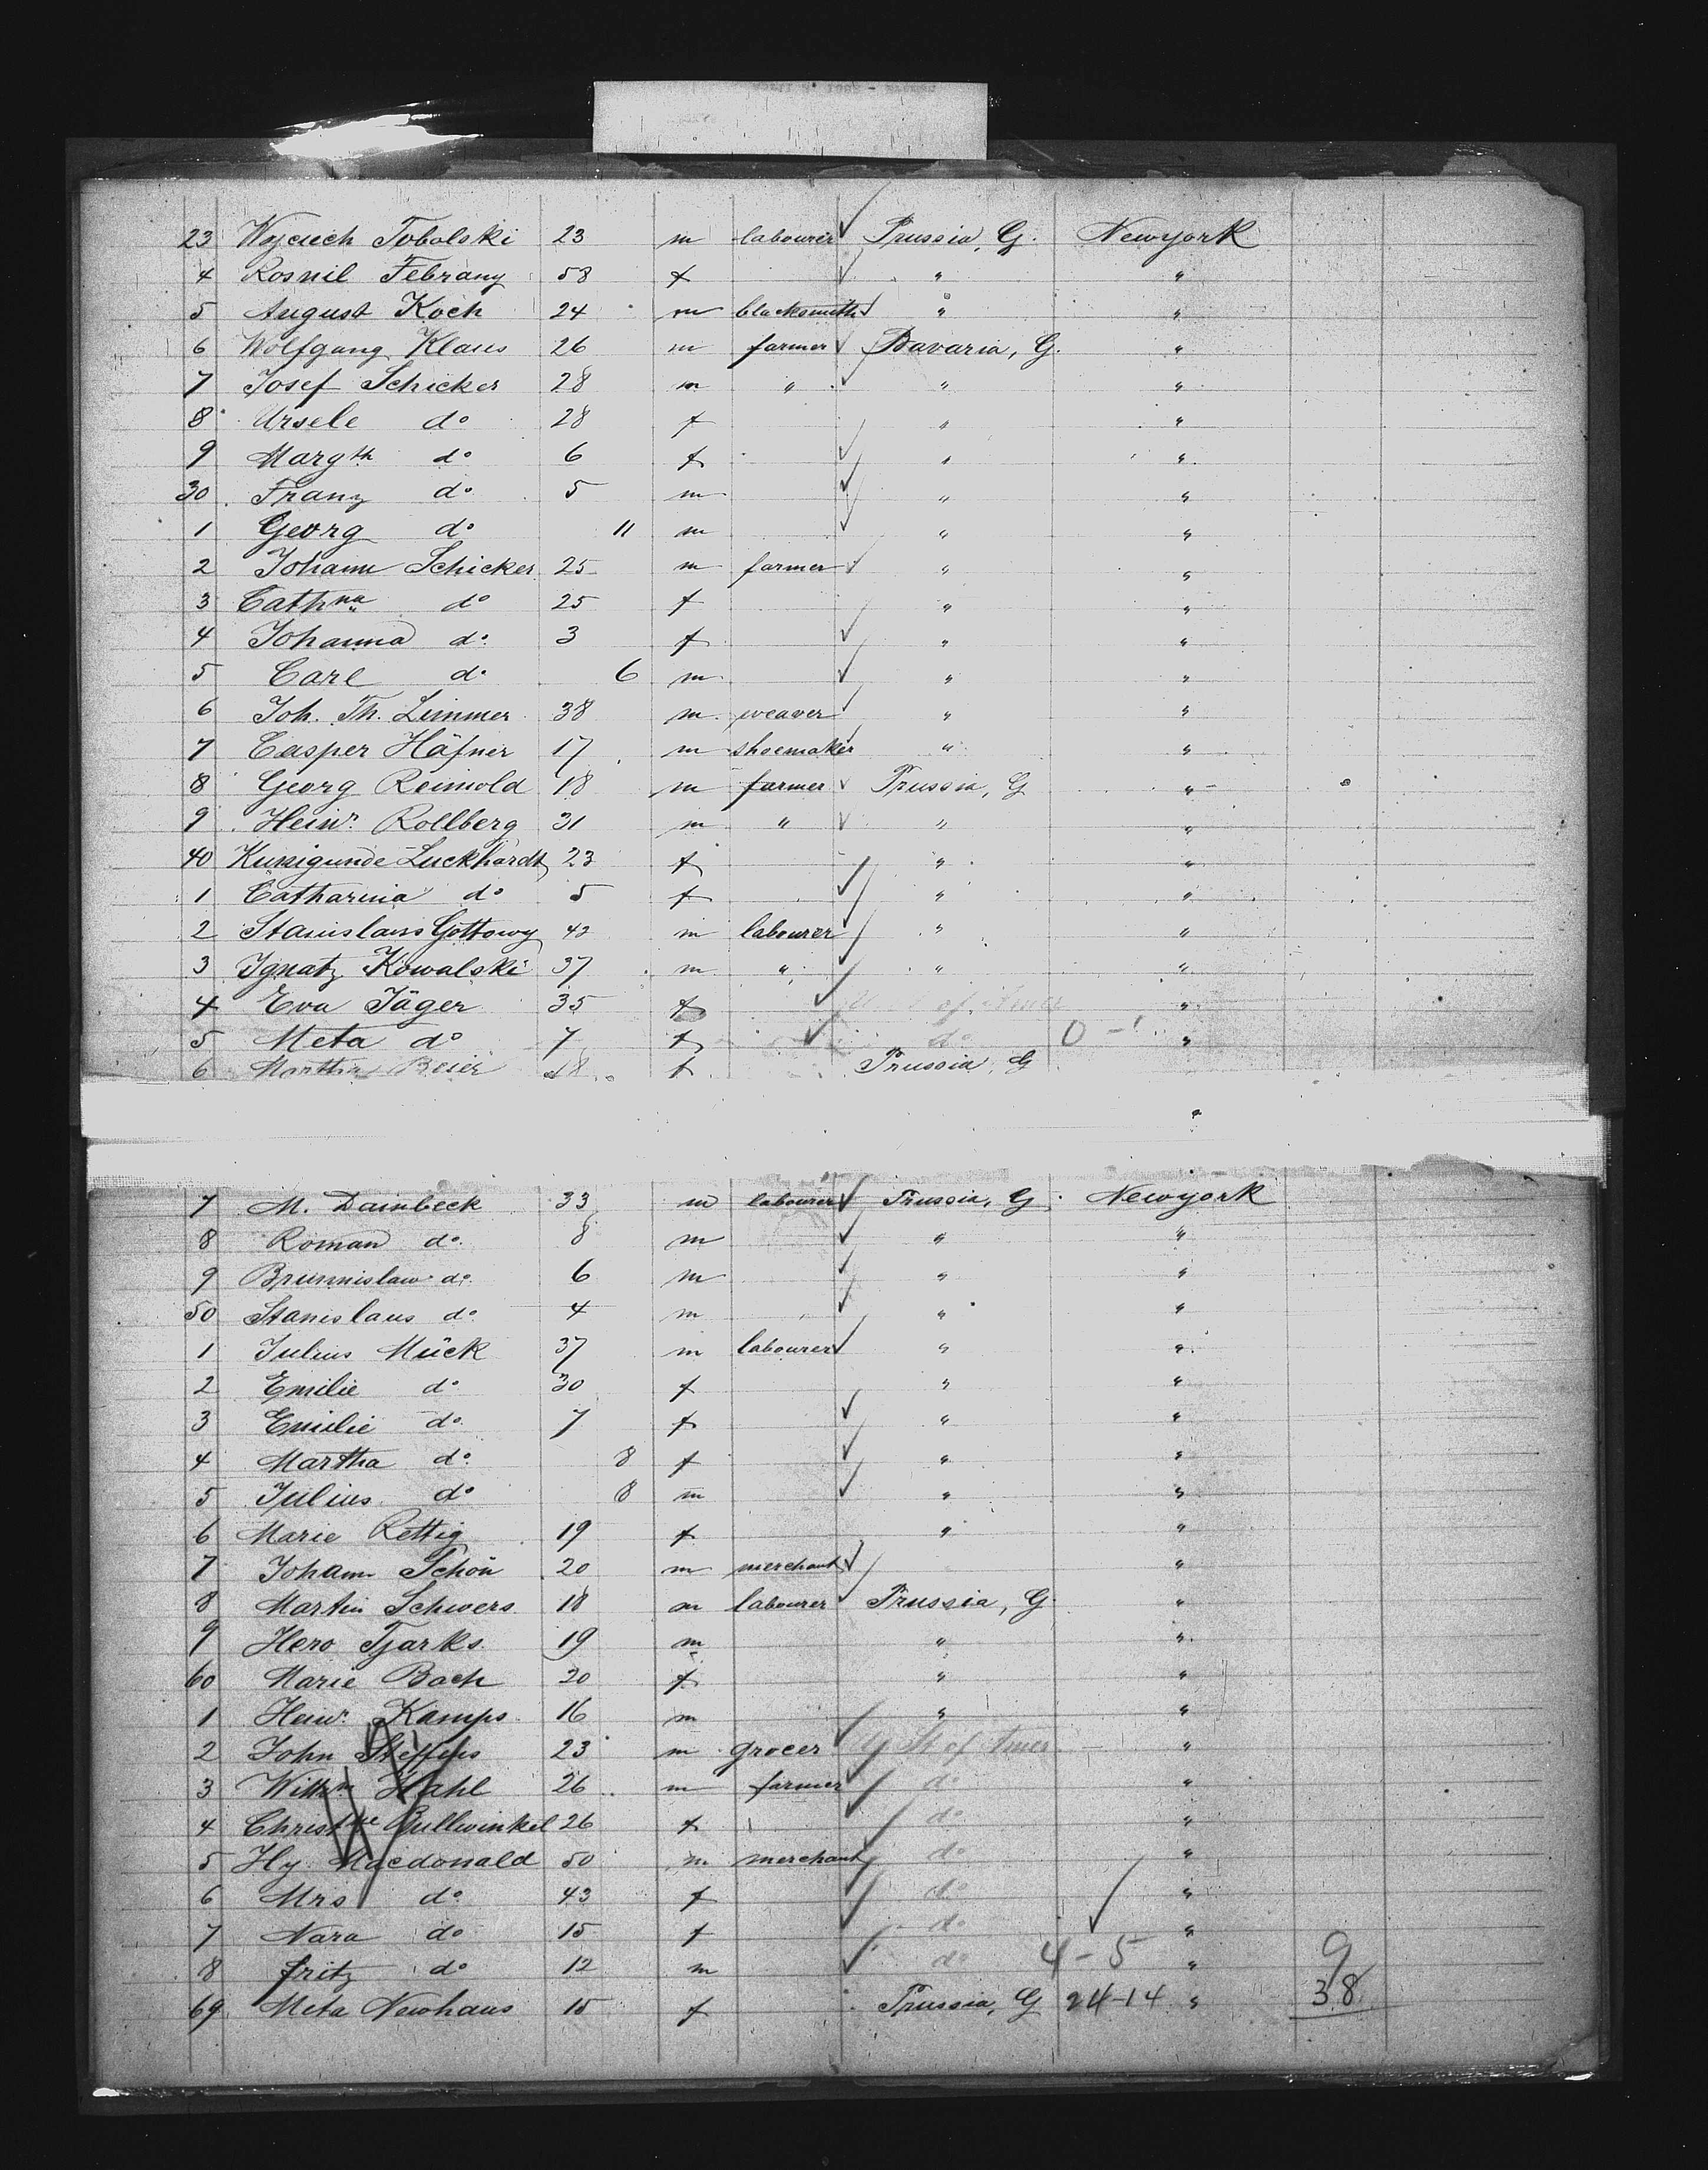 23 Wojciech Tobolski 23 m labourer Prussia, G. Newyork
4 Rosnil Febrany 58 f " "
5 August Koch 24 m blacksmith " "
6 Wolfgang Klaus 26 m farmer Bavaria, G. "
7 Josef Schicker 28 m " " "
8 Ursele do 28 f " "
9 Margth do 6 f " "
30 Franz do 5 m " "
1 Georg do 11 m " "
2 Johann Schicker 25 m farmer " "
3 Cathna do 25 f " "
4 Johanna do 3 f " "
5 Carl do 6 m " "
6 Joh. Th. Limmer 38 m weaver " "
7 Casper Häfner 17 m shoemaker " "
8 Georg Reimold 18 m farmer Prussia, G "
9 Heinr. Rollberg 31 m " " "
40 Kunigunde Luckhardt 23 f " "
1 Catharina do 5 f " "
2 Stanislaus Gottowy 42 m labourer " "
3 Ignatz Kowalski 37 m " " "
4 Eva Jäger 35 f of Amer "
5 Meta do 7 f do 0 - "
6 Martha Beier 18 f Prussia, G
"
7 M. Dambeck 33 m labourer Prussia, G. Newyork
8 Roman do 8 m " "
9 Brunnislaw do 6 m " "
50 Stanislaus do 4 m " "
1 Julius Mück 37 m labourer " "
2 Emilie do 30 f " "
3 Emilie do 7 f " "
4 Martha do 8 f " "
5 Julius do 8 m " "
6 Marie Rettig 19 f " "
7 Johann Schön 20 m merchant "
8 Martin Schwers 18 m labourer Prussia, G "
9 Hero Tjarks 19 m " "
60 Marie Bach 20 f " "
1 Heinr. Kamps 16 m " "
2 John Steffens 23 m grocer U St of Amer "
3 Willm Hahl 26 m farmer do "
4 Christne Bullwinkel 26 f do "
5 Hy. Macdonald 50 m merchant do "
6 Mrs do 43 f do "
7 Nara do 15 f do "
8 fritz do 12 m do 4-5 " 9
69 Meta Newhaus 15 f Prussia, G 24-14 " 38